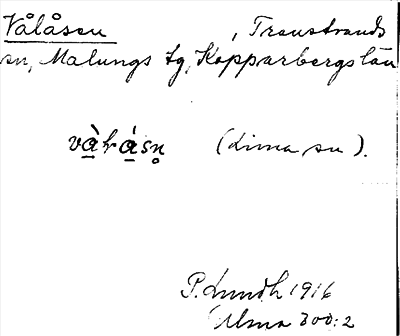 Vålåsen, Transtrands
sn, Malungs tg, Kopparbergs län
(Lima sn).
P. Lundh 1916
Ulma 300:2